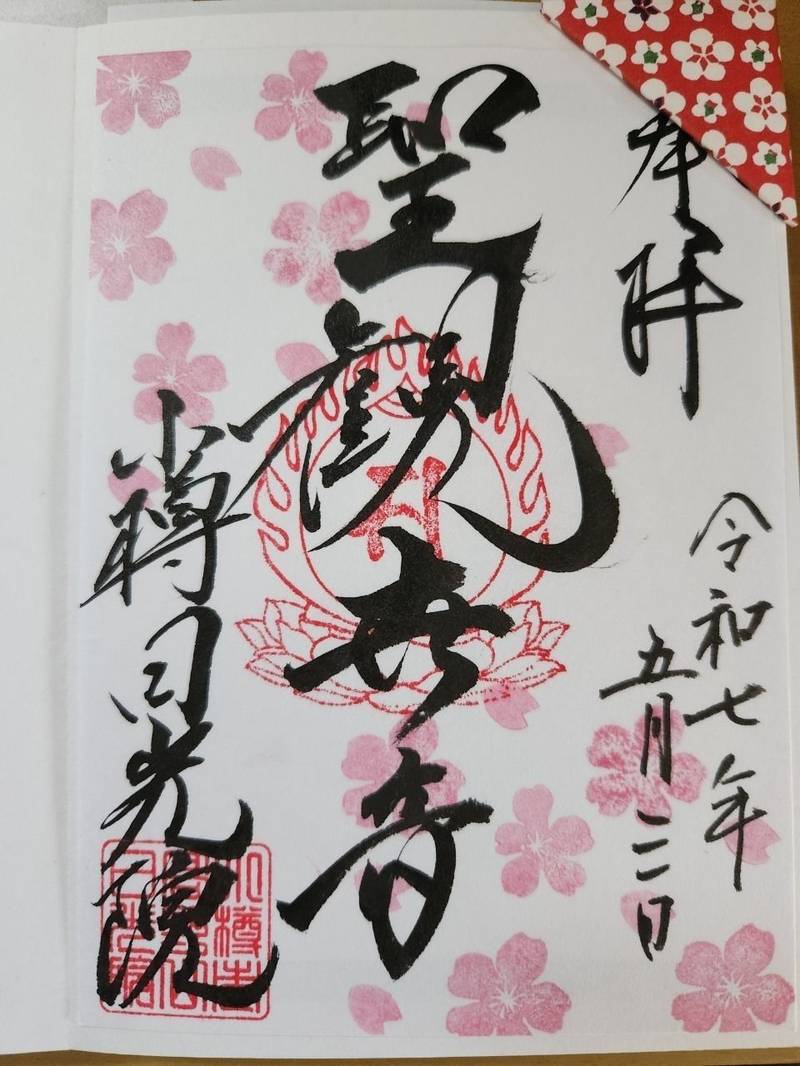 奉拝
令和七年
五月三日
聖観世音
小樽日光院